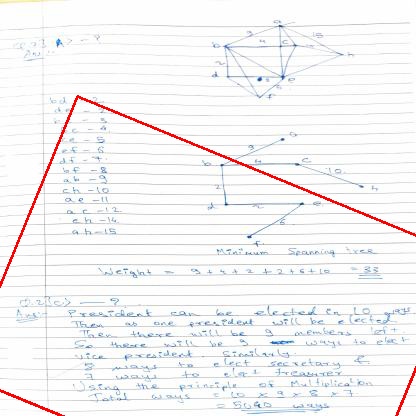 Q.2) A) — ?
Ans:-
a
9
15
b
4
c
2
d
e
f
h
bd - 2
- 3
c - 4
ce - 5
ef - 6
df - 7
bf - 8
ab - 9
ch - 10
ae - 11
ac - 12
eh - 14
ah - 15
a
9
b
4
c
10
h
2
d
2
e
6
f
Minimum Spanning tree
Weight = 9 + 4 + 2 + 2 + 6 + 10 = 33
Q.2)(c) — ?
Ans:- President can be elected in 10 ways.
Then as one president will be elected
Then there will be 9 members left.
So there will be 9 ways to elect
vice president. Similarly
8 ways to elect secretary &
7 ways to elect treasurer
Using the principle of Multiplication
Total ways = 10 × 9 × 8 × 7
= 5040 ways